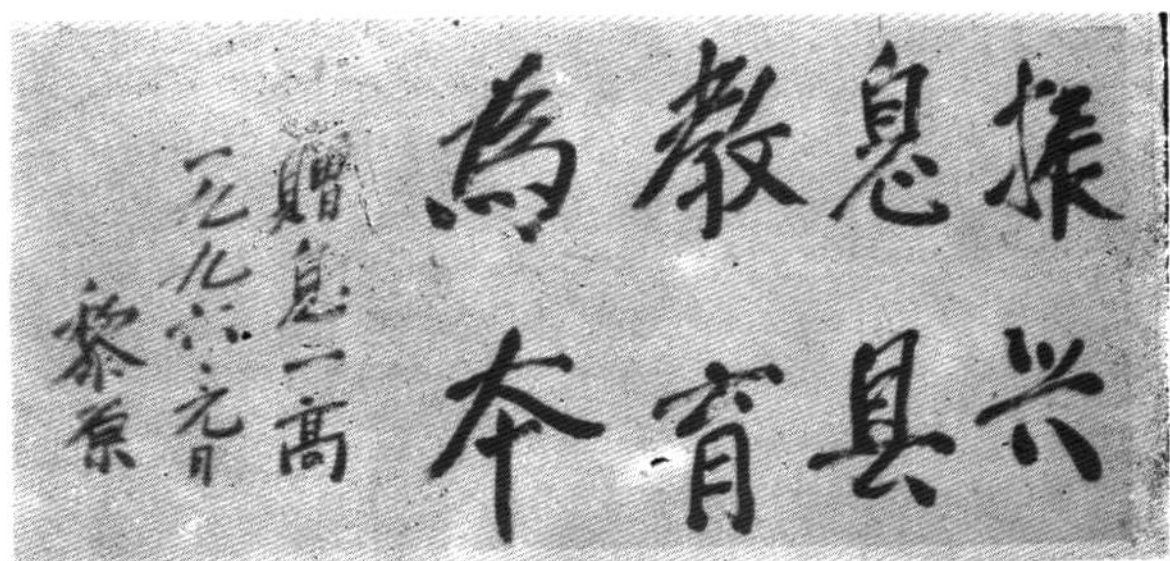 振兴
息县
教育
为本
赠息一高
一九九六.元月
黎原